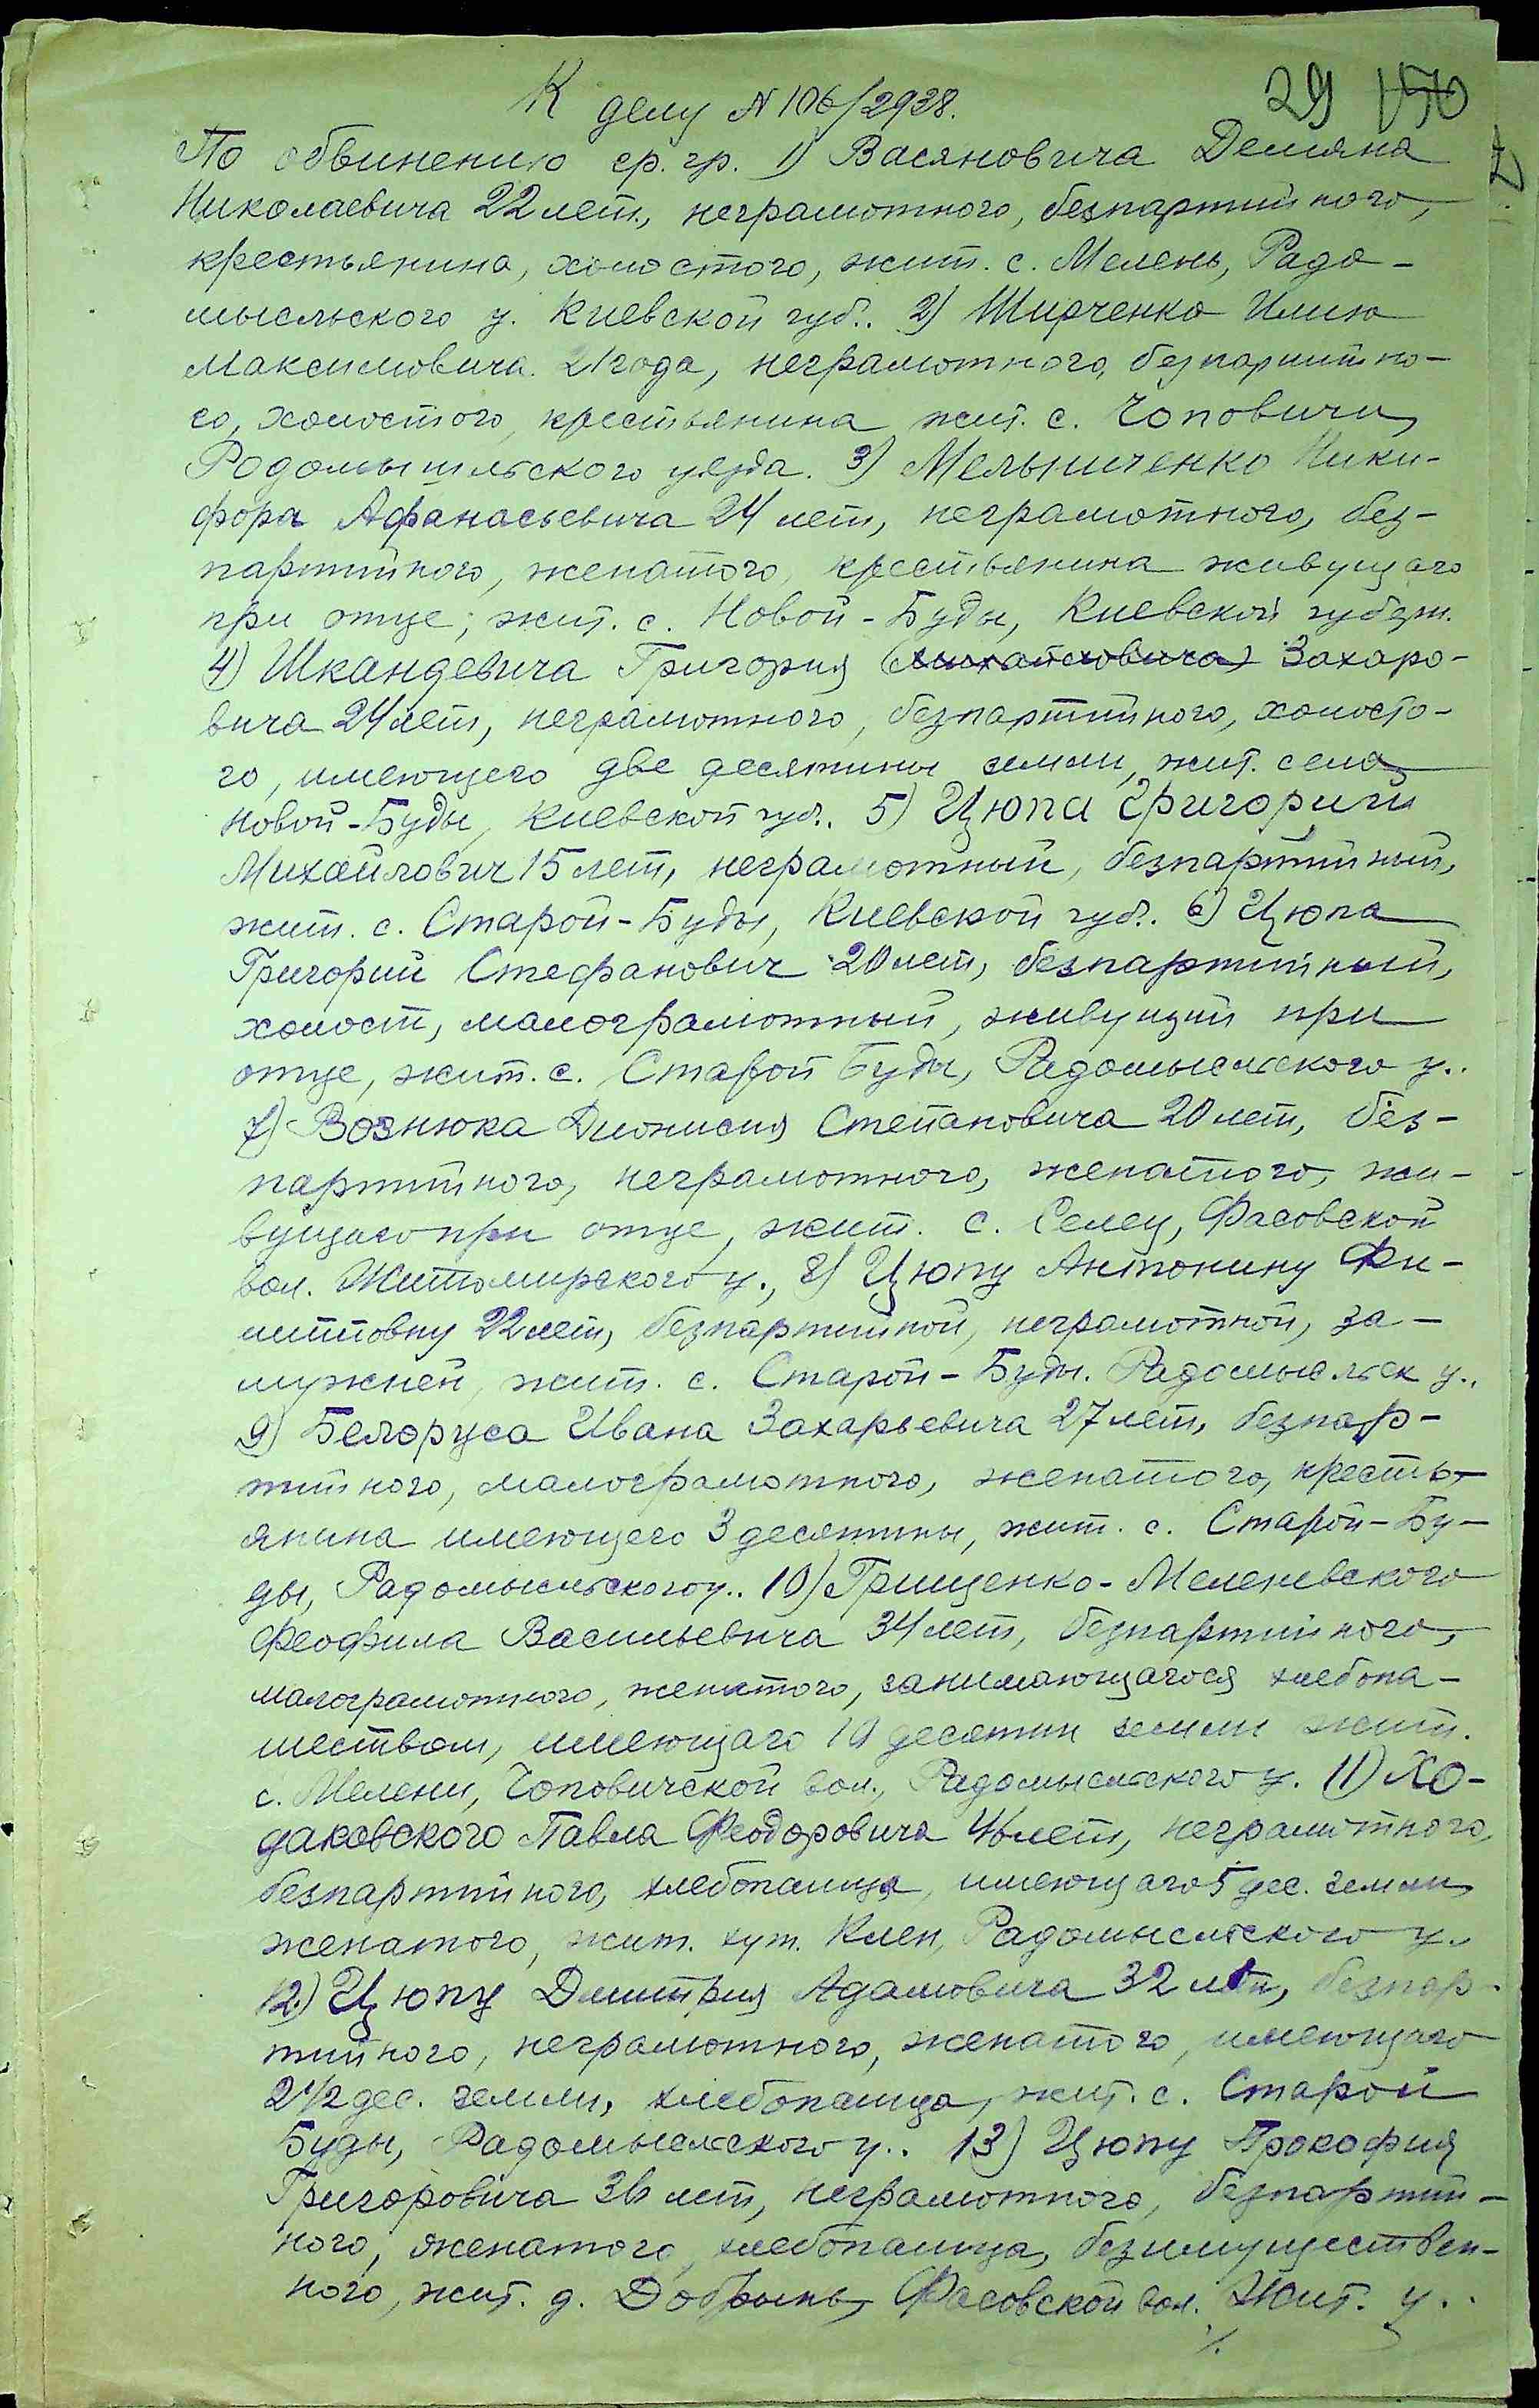 К делу № 106/2938.
29 150
По обвинению ср. гр. 1) Васяновича Демяна
Николаевича 22 лет, неграмотного, безпартийного,
крестьянина, холостого, жит. с. Мелень, Радо-
мысльского у. Киевской губ.. 2) Ширченко Илию
Максимовича. 21 года, неграмотного, безпартийно-
го, холостого, крестьянина жит. с. Чоповичи,
Родомышльского уезда. 3) Мельниченко Ники-
фора Афанасьевича 24 лет, неграмотного, без-
партийного, женатого, крестьянина живущаго
при отце; жит. с. Новой-Буды, Киевской губерн.
4) Шкандевича Григория (Михайловича) Захаро-
вича 24 лет, неграмотного, безпартийного, холосто-
го, имеющего две десятины земли, жит. села
Новой-Буды, Киевской губ.. 5) Цюпа Григорий
Михайлович 15 лет, неграмотный, безпартийный,
жит. с. Старой-Буды, Киевской губ.. 6) Цюпа
Григорий Стефанович 20 лет, безпартийный,
холост, малограмотный, живущий при
отце, жит. с. Старой Буды, Радомысльского у..
7) Вознюка Дионисия Степановича 20 лет, без-
партийного, неграмотного, женатого, жи-
вущаго при отце, жит. с. Селец, Фасовской
вол. Житомирского у., 8) Цюпу Антонину Фи-
липповну 22 лет, безпартийной, неграмотной, за-
мужней, жит. с. Старой-Буды. Радомысльск у..
9) Белоруса Ивана Захарьевича 27 лет, безпар-
тийного, малограмотного, женатого, кресть-
янина имеющего 3 десятины, жит. с. Старой-Бу-
ды, Радомысльского у.. 10) Грищенко-Меленевского
Феофила Васильевича 34 лет, безпартийного,
малограмотного, женатого, занимающагося хлебопа-
шеством, имеющаго 10 десятин земли жит.
с. Мелени, Чоповичской вол., Радомысльского у. 11) Хо-
даковского Павла Феодоровича 46 лет, неграмотного,
безпартийного, хлебопашца, имеющаго 5 дес. земли,
женатого, жит. хут. Клен, Радомысльского у.
12) Цюпу Дмитрия Адамовича 32 лет, безпар-
тийного, неграмотного, женатого, имеющаго
2 1/2 дес. земли, хлебопашца, жит. с. Старой
Буды, Радомысльского у.. 13) Цюпу Прокофия
Григоровича 36 лет, неграмотного, безпартий-
ного, женатого, хлебопашца, безимуществен-
ного, жит. д. Добрынь, Фасовской вол. Жит. у..